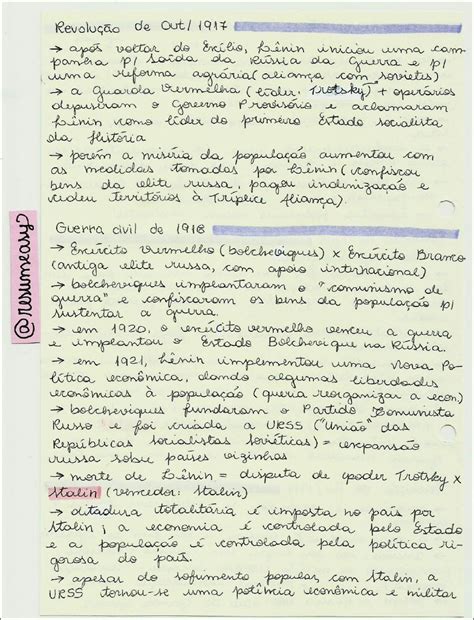 Revolução de Out/1917
→ após voltar do Exílio, Lênin iniciou uma cam
panha p/ saída da Rússia da Guerra e p/
uma reforma agrária (aliança com sovietes)
→ a Guarda Vermelha (líder: Trotsky) + operários
depuseram o Governo Provisório e aclamaram
Lênin como líder do primeiro Estado socialista
da História
→ porém a miséria da população aumentou com
as medidas tomadas por Lênin (confiscou
bens da elite russa, pagou indenização e
cedeu territórios à Tríplice Aliança).
Guerra civil de 1918
→ Exército Vermelho (bolcheviques) x Exército Branco
(antiga elite russa, com apoio internacional)
→ bolcheviques implantaram o "comunismo de
guerra" e confiscaram os bens da população p/
sustentar a guerra.
→ em 1920, o exército vermelho venceu a guerra
e implantou o Estado Bolchevique na Rússia.
→ em 1921, Lênin implementou uma Nova Po
lítica econômica, dando algumas liberdades
econômicas à população (queria reorganizar a econ)
→ bolcheviques fundaram o Partido Comunista
Russo e foi criada a URSS ("União" das
Repúblicas Socialistas Soviéticas) = expansão
russa sobre países vizinhos
→ morte de Lênin = disputa de poder Trotsky x
Stalin (vencedor: Stalin)
→ ditadura totalitária é imposta no país por
Stalin; a economia é controlada pelo Estado
e a população é controlada pela política ri-
gorosa do país.
→ apesar do sofrimento popular, com Stalin, a
URSS tornou-se uma potência econômica e militar
@resumeasy